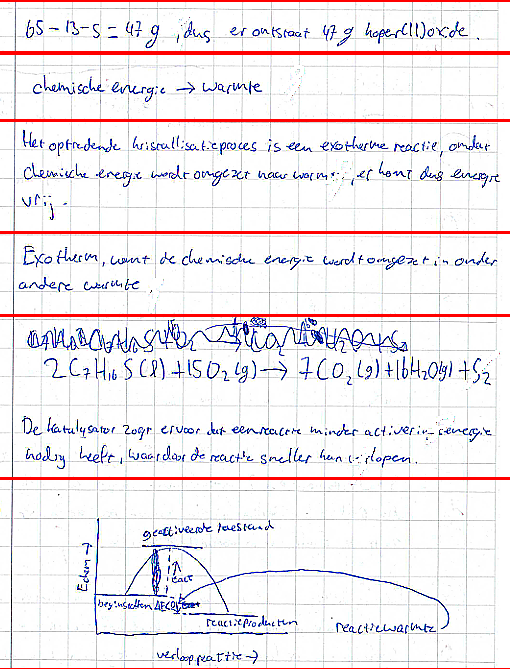 65 - 13 - 5 = 47 g , dus er ontstaat 47 g koper(II)oxide.
chemische energie → warmte
Het optredende kristallisatieproces is een exotherme reactie, omdat
chemische energie wordt omgezet naar warmte, er komt dus energie
vrij.
Exotherm, want de chemische energie wordt omgezet in onder
andere warmte.
2 C7H16 S (l) + 15 O2 (g) → 7 CO2 (g) + 16 H2O (g) + S2
De katalysator zogr ervoor dat een reactie minder activeringsenergie
nodig heeft, waardoor de reactie sneller kan verlopen.
geactiveerde toestand
Echem →
Eact
beginstoffen
reactieproducten
reactiewarmte
verloop reactie →